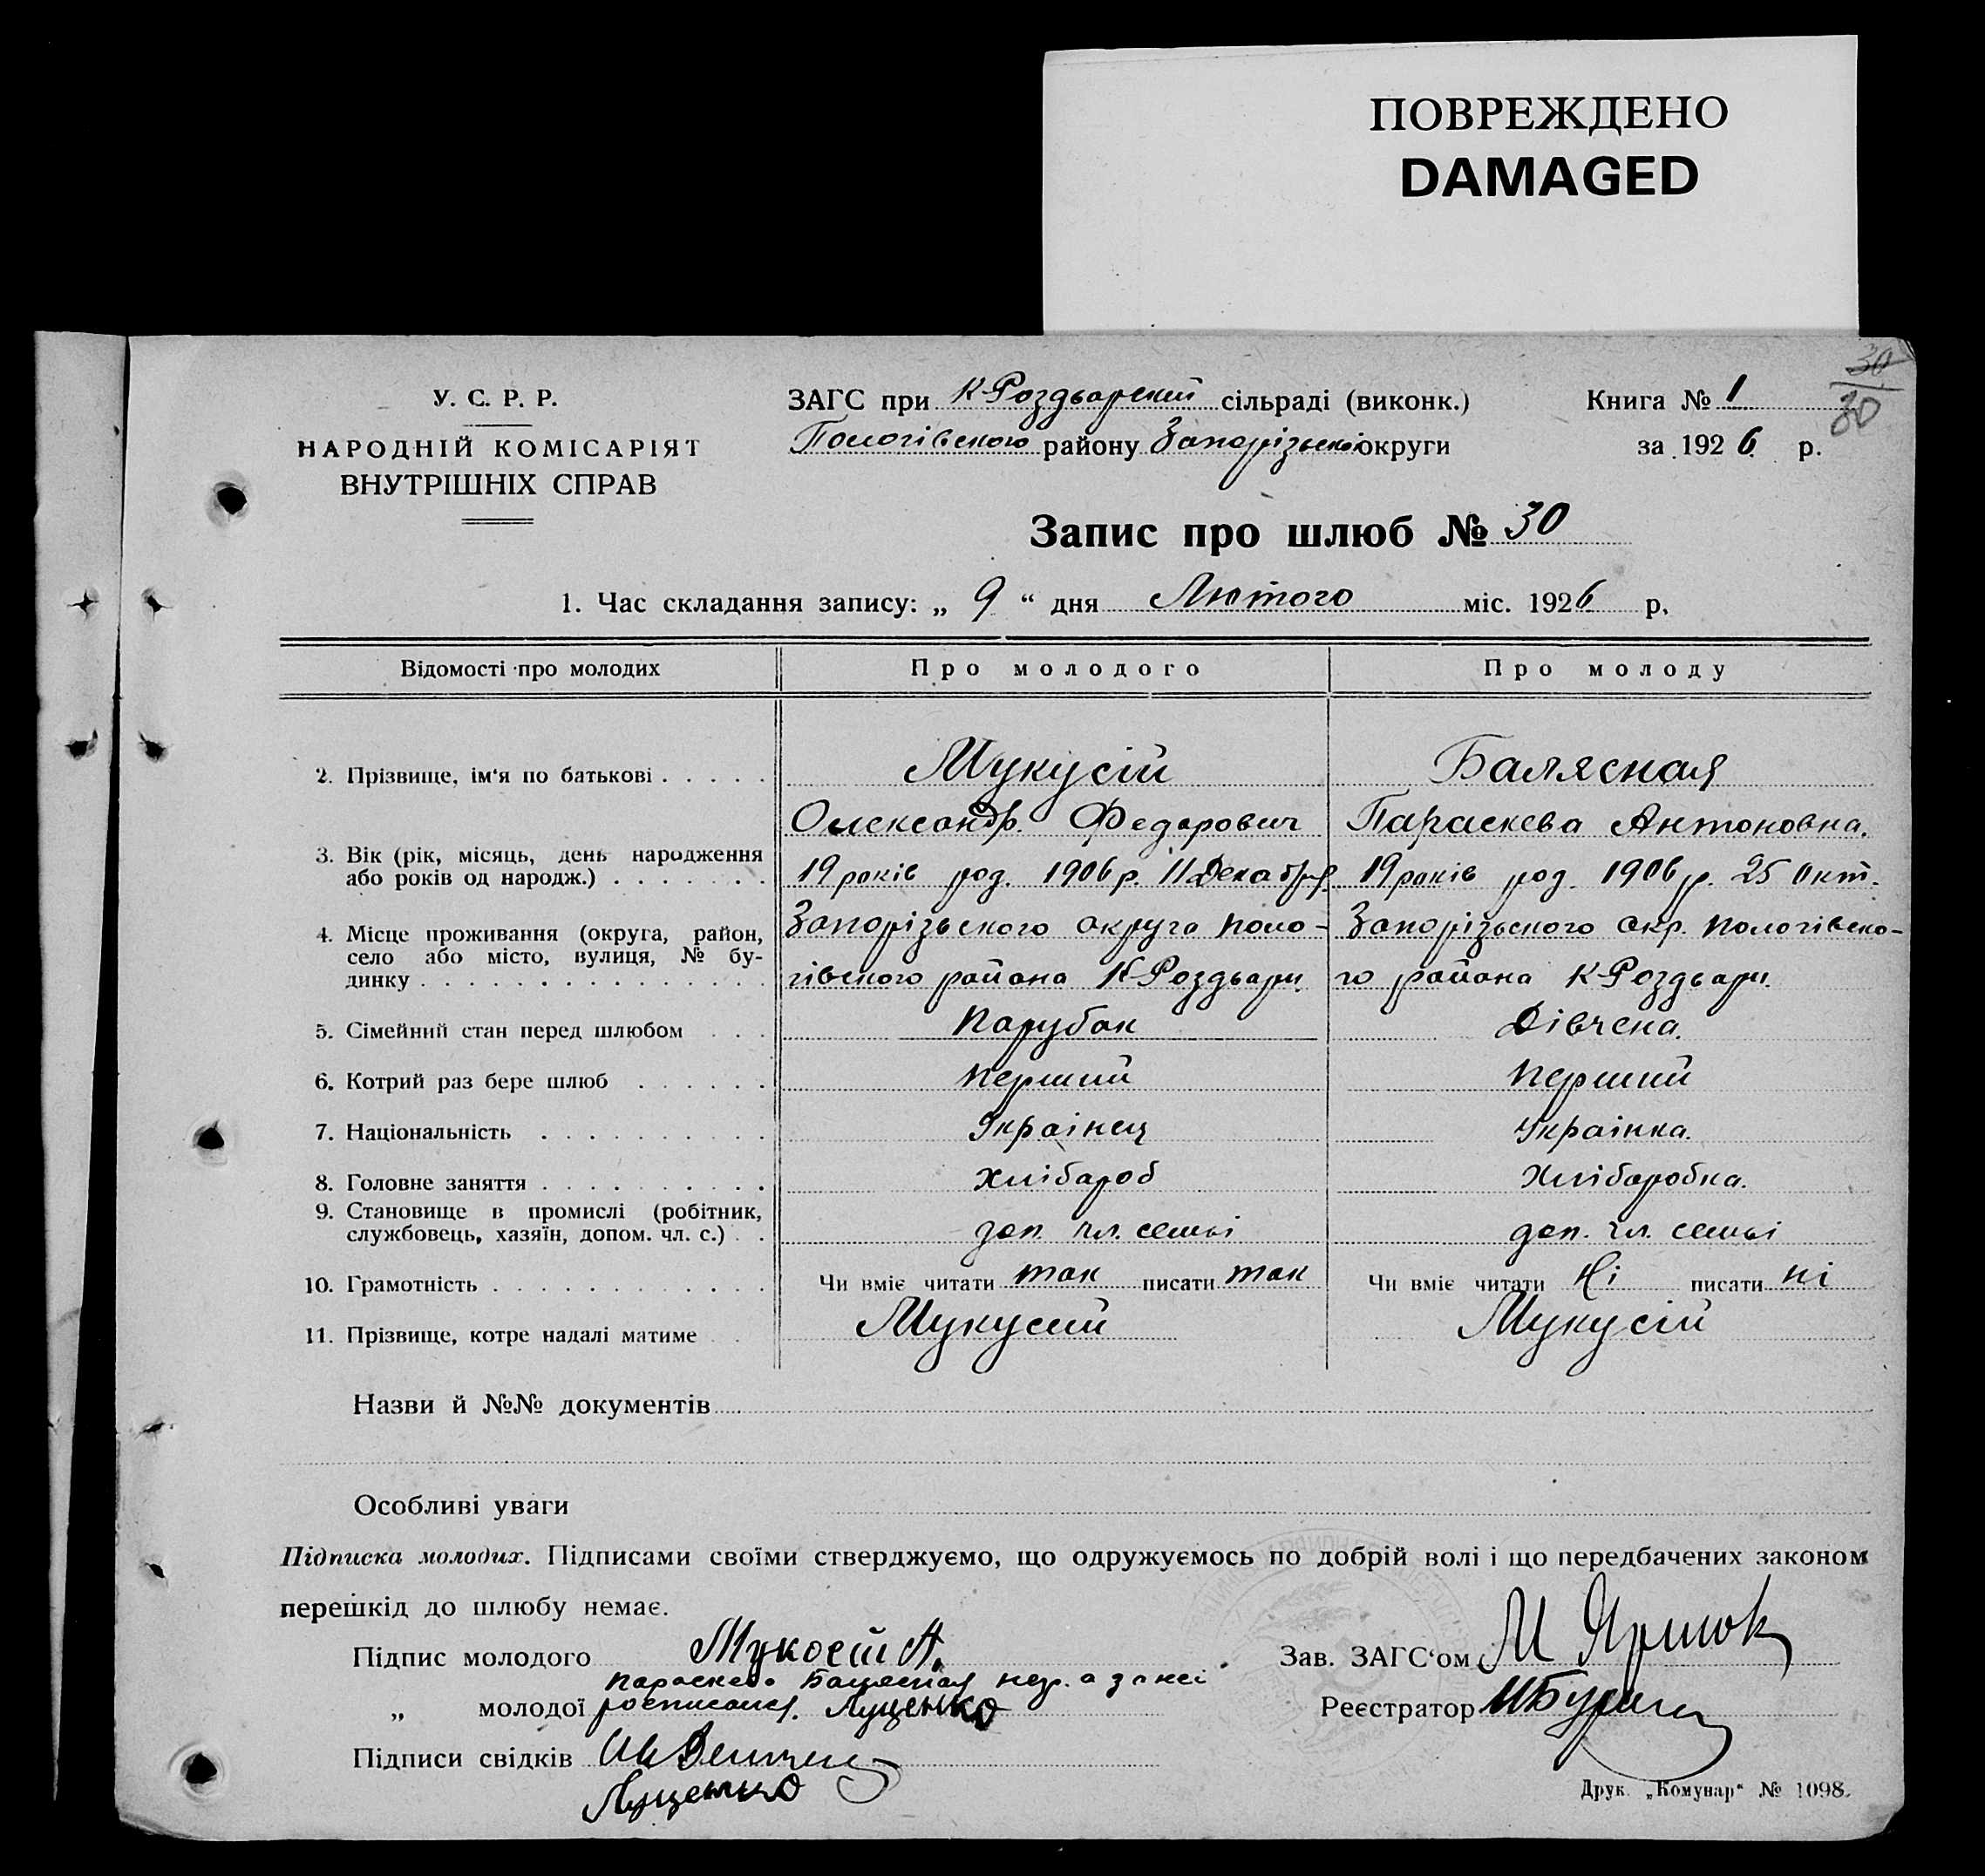 ПОВРЕЖДЕНО
DAMAGED
30
30
У. С. Р. Р.
НАРОДНІЙ КОМІСАРІЯТ
ВНУТРІШНІХ СПРАВ
ЗАГС при К-Роздьорскій сільраді (виконк.)
Пологівского району Запорізької округи
Книга № 1
за 1926 р.
Запис про шлюб № 30
1. Час складання запису: „ 9 “ дня Лютого міс. 1926 р.
Відомості про молодих Про молодого Про молоду
2. Прізвище, ім‘я по батькові Мукусій Балясная
Олександр. Федорович Параскева Антоновна.
3. Вік (рік, місяць, день народження
або років од народж.) 19 років род. 1906 р. 11 Декабря 19 років род. 1906 р. 25 Окт.
4. Місце проживання (округа, район,
село або місто, вулиця, № бу-
динку
Запорізького округа Поло-
гівского района К-Роздьори
Запорізького окр. Пологівско-
го района К-Роздьори.
5. Сімейний стан перед шлюбом Парубок Дівчена.
6. Котрий раз бере шлюб Перший Перший
7. Національність Украінец Украінка.
8. Головне заняття Хлібороб Хліборобка.
9. Становище в промислі (робітник,
службовець, хазяїн, допом. чл. с.) доп. чл. семьі доп. чл. семьі
10. Грамотність Чи вміє читати так писати так Чи вміє читати Ні писати ні
11. Прізвище, котре надалі матиме Мукусій Мукусій
Назви й №№ документів
Особливі уваги
Підписка молодих. Підписами своїми стверджуємо, що одружуємось по добрій волі і що передбачених законом
перешкід до шлюбу немає.
Підпис молодого Мукосій А.
Параскева Балясная негр. а за неі
„ молодої росписался. Луценко
Підписи свідків
Луценко
Зав. ЗАГС‘ом М
Реєстратор
Друк. „Комунар“ № 1098.